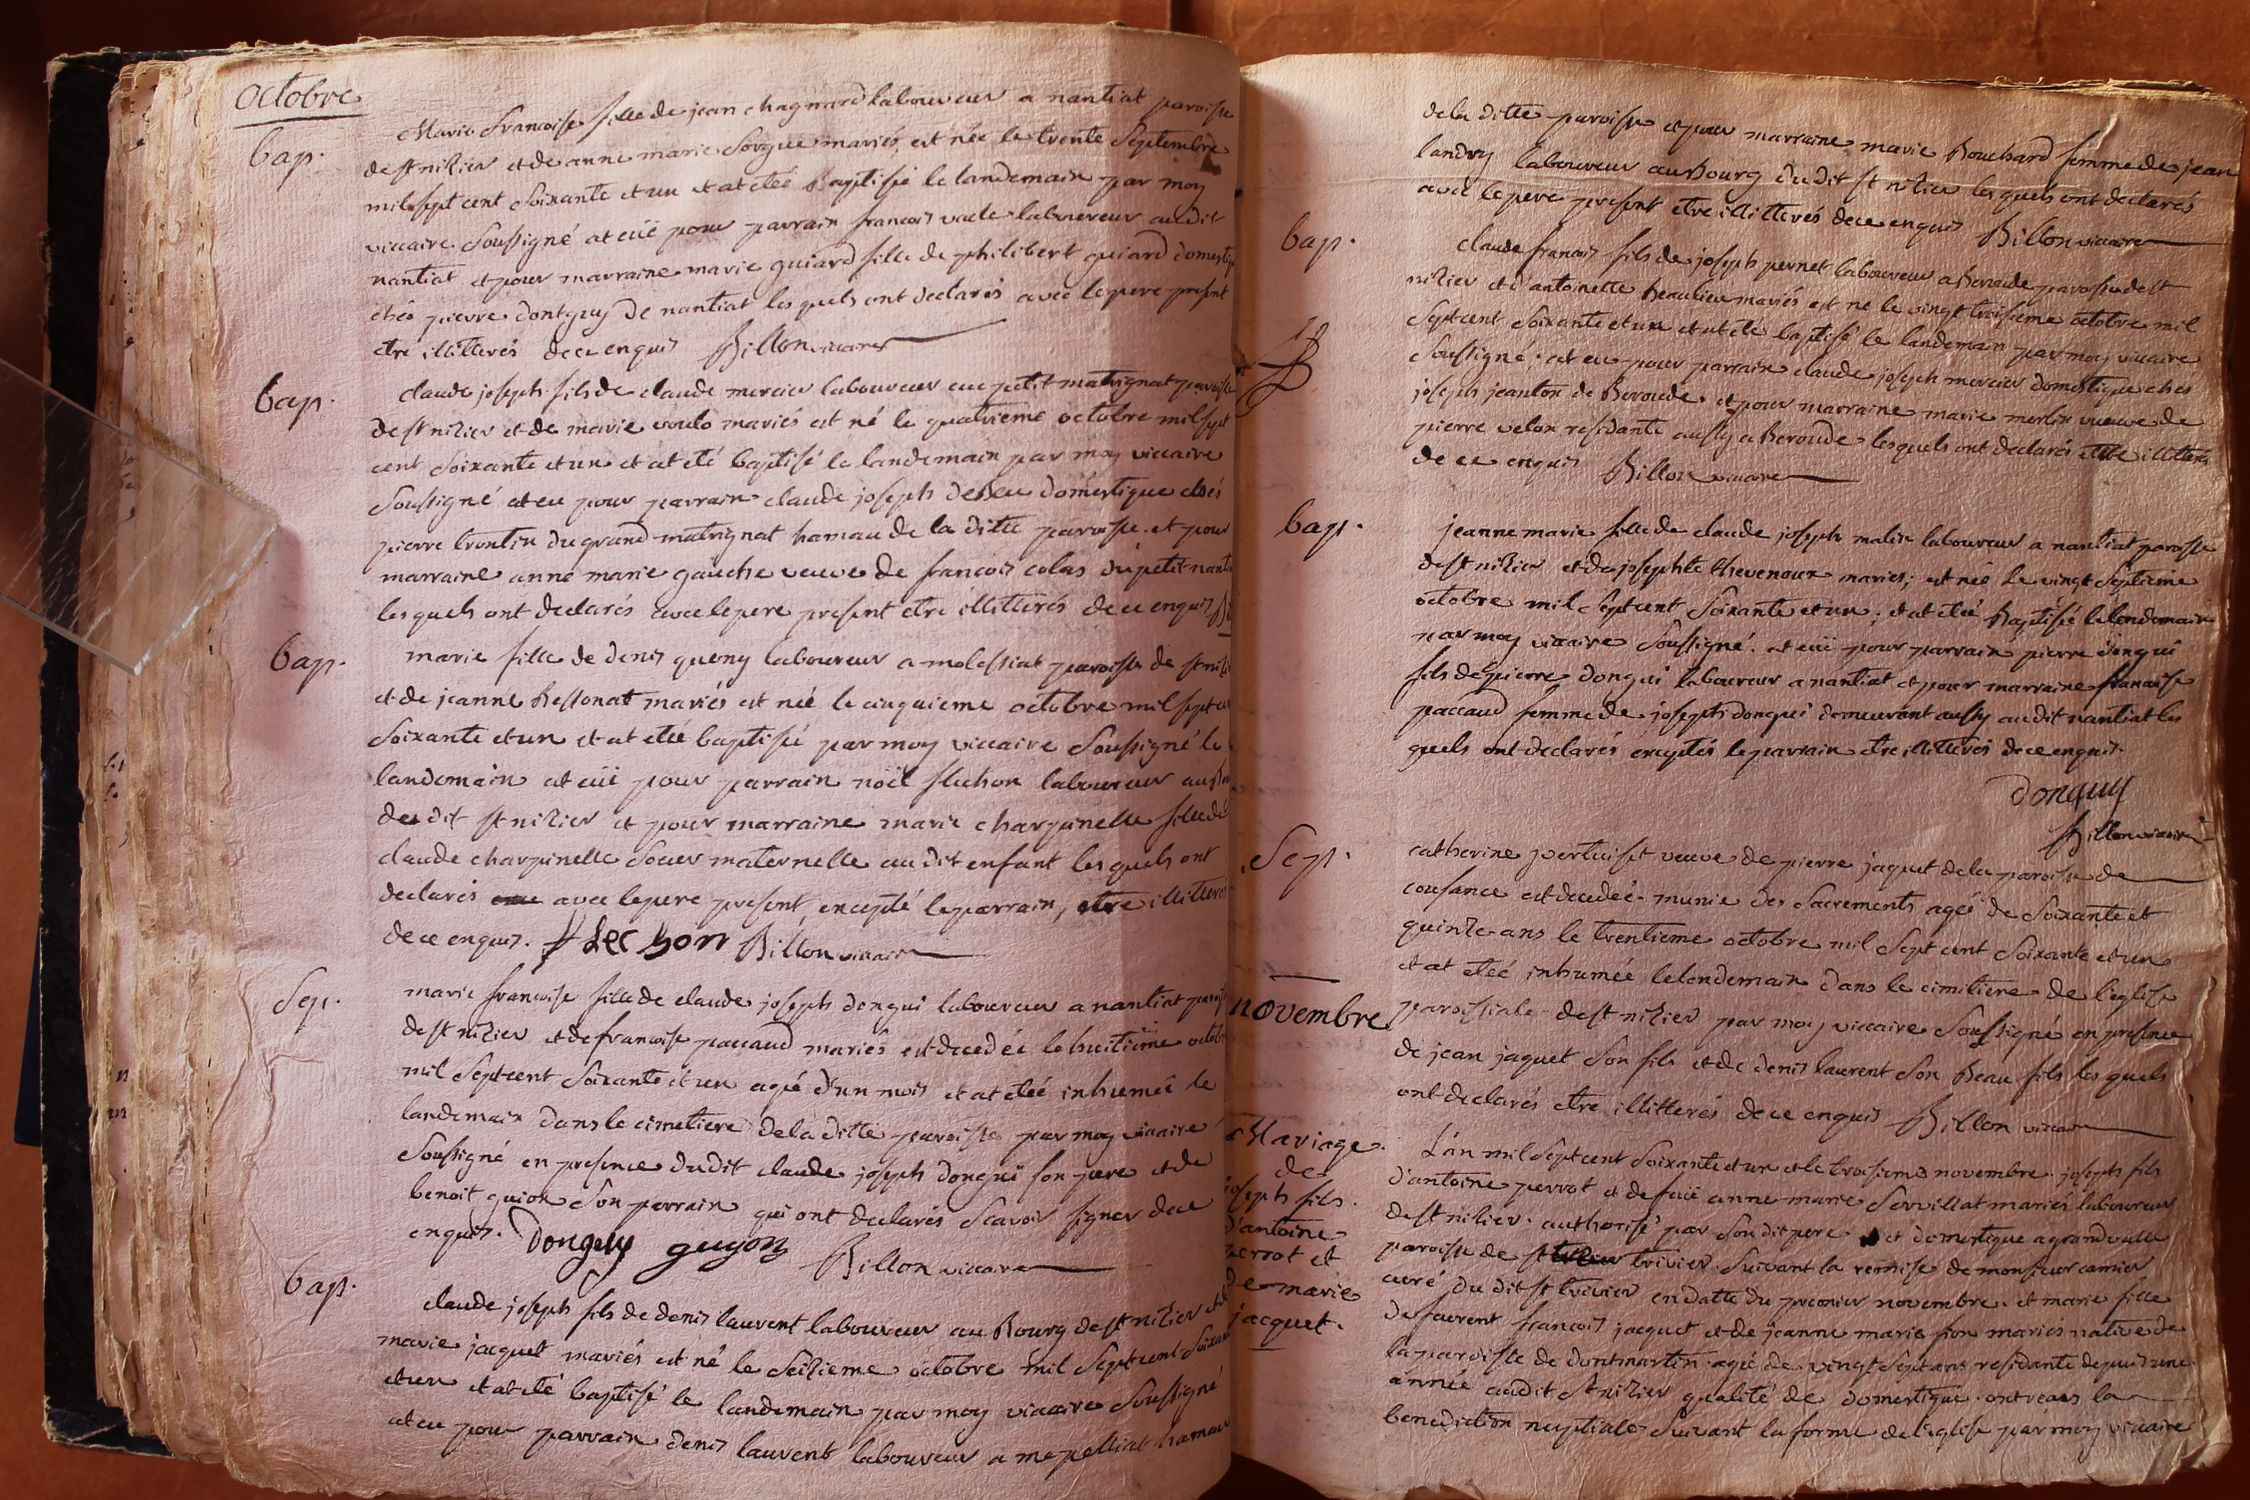 octobre
bap.
Marie francoise fille de jean chagnard laboureur a nantiat paroisse
de st nizier et de anne marie Sorgue mariés, est née le trente Septembre
mil sept cent Soixante et un et at eteé Baptisée le landemain par moy
viccaire Soussigné at eüe pour parrain francois vacle laboureur audit
nantiat et pour marraine marie guiard fille de philibert guiard domestiq
chés pierre donguy de nantiat lesquels ont declarés avec le pere present
etre illitterés de ce enquis Billon viccaire
bap.
claude joseph fils de claude mercier laboureur au petit matrignat paroisse
de st nizier et de marie voulo mariés est né le quatrieme octobre mil sept
cent Soixante et un et at eté baptisé le landemain par moy viccaire
Soussigné at eu pour parrain claude joseph debeu domestique chés
pierre trontin du grand matrignat hameau de la ditte paroisse et pour
marraine anne marie gauche veuve de francois colas du petit nanti
lesquels ont declarés avec le pere present etre illitterés de ce enquis
bap.
marie fille de denis queny laboureur a molessiat paroisse de st nizi
et de jeanne Bessonat mariés est née le cinquieme octobre mil sept ce
Soixante et un et at eteé baptisée par moy viccaire Soussigné le
landemain at eüe pour parrain noël fluchon laboureur au Bou
du dit st nizier et pour marraine marie charpinelle fille de
claude charpinelle Soeur maternelle au dit enfant lesquels ont
declarés avec le pere present, excepté le parrain, etre illitterés
de ce enquis. flechon Billon viccaire
Sep.
marie francoise fille de claude joseph dongui laboureur a nantiat paroi
de st nizier et de francoise paccaud mariés est decedée le huitieme octob
mil Sept cent Soixante et un agée d'un mois et at eteé inhumée le
landemain dans le cimetiere de la ditte paroisse par moy viccaire
Soussigné en presence du dit claude joseph dongui son pere et de
benoit guion Son parrain qui ont declarés Scavoir signer de ce
enquis. Donguy guyon Billon viccaire
bap.
claude joseph fils de denis laurent laboureur au Bourg de st nizier et de
marie jacquet mariés est né le Seizieme octobre mil Sept cent Soixan
et un et at eté baptisé le landemain par moy viccaire Soussigné
at eu pour parrain denis laurent laboureur a mepelliat hameau
de la ditte paroisse et pour marraine marie Bouchard femme de jean
landry laboureur au Bourg du dit st nizier lesquels ont declarés
avec le pere present etre illitterés de ce enquis Billon viccaire
bap.
claude francois fils de joseph pernet laboureur a Beroude paroisse de st
nizier et d'antoinette Beaulieu mariés est né le vingt troisieme octobre mil
Sept cent Soixante et un et at eté baptisé le landemain par moy viccaire
Soussigné; at eu pour parrain claude joseph mercier domestique chés
joseph jeanton de Beroude. et pour marraine marie merlin veuve de
pierre velon residante aussy a Beroude lesquels ont declarés etre illitterés
de ce enquis Billon viccaire
bap.
jeanne marie fille de claude joseph malin laboureur a nantiat paroisse
de st nizier et de josephte thevenoux mariés; est née le vingt Septieme
octobre mil Sept cent Soixante et un; et at eteé Baptisée le lendemain
par moy viccaire Soussigné. at eüe pour parrain pierre dongui
fils de pierre dongui laboureur a nantiat et pour marraine francoise
paccaud femme de joseph dongui demeurant aussy au dit nantiat les
quels ont declarés exceptés le parrain etre illitterés de ce enquis.
donguy
Billon viccaire
Sep.
catherine pertuiset veuve de pierre jaquet de la paroisse de
cousance est decedeé munie des Sacrements ageé de Soixante et
quinze ans le trentieme octobre mil Sept cent Soixante et un
et at eteé inhumée le lendemain dans le cimitiere de l'eglise
paroissiale de st nizier par moy viccaire Soussigné en presence
de jean jaquet Son fils et de denis laurent Son Beau fils lesquels
ont declarés etre illitterés de ce enquis Billon viccaire
novembre
Mariage
de
joseph fils
d'antoine
perrot et
de marie
jacquet.
L'an mil Sept cent Soixante et un et le troisieme novembre joseph fils
d'antoine perrot et de füe anne marie Servillat mariés laboureur
de st nizier. authorisé par Son dit pere et domestique a grand valle
paroisse de st trivier Suivant la remise de monsieur carrier
curé du dit st trivier en datte du premier novembre. et marie fille
de faurent francois jacquet et de jeanne marie fion mariés native de
la paroisse de dontmartin ageé de vingt Sept ans residante depuis une
année audit St nizier qualité de domestique ont recus la
benediction nuptiale Suivant la forme de l'eglise par moy viccaire